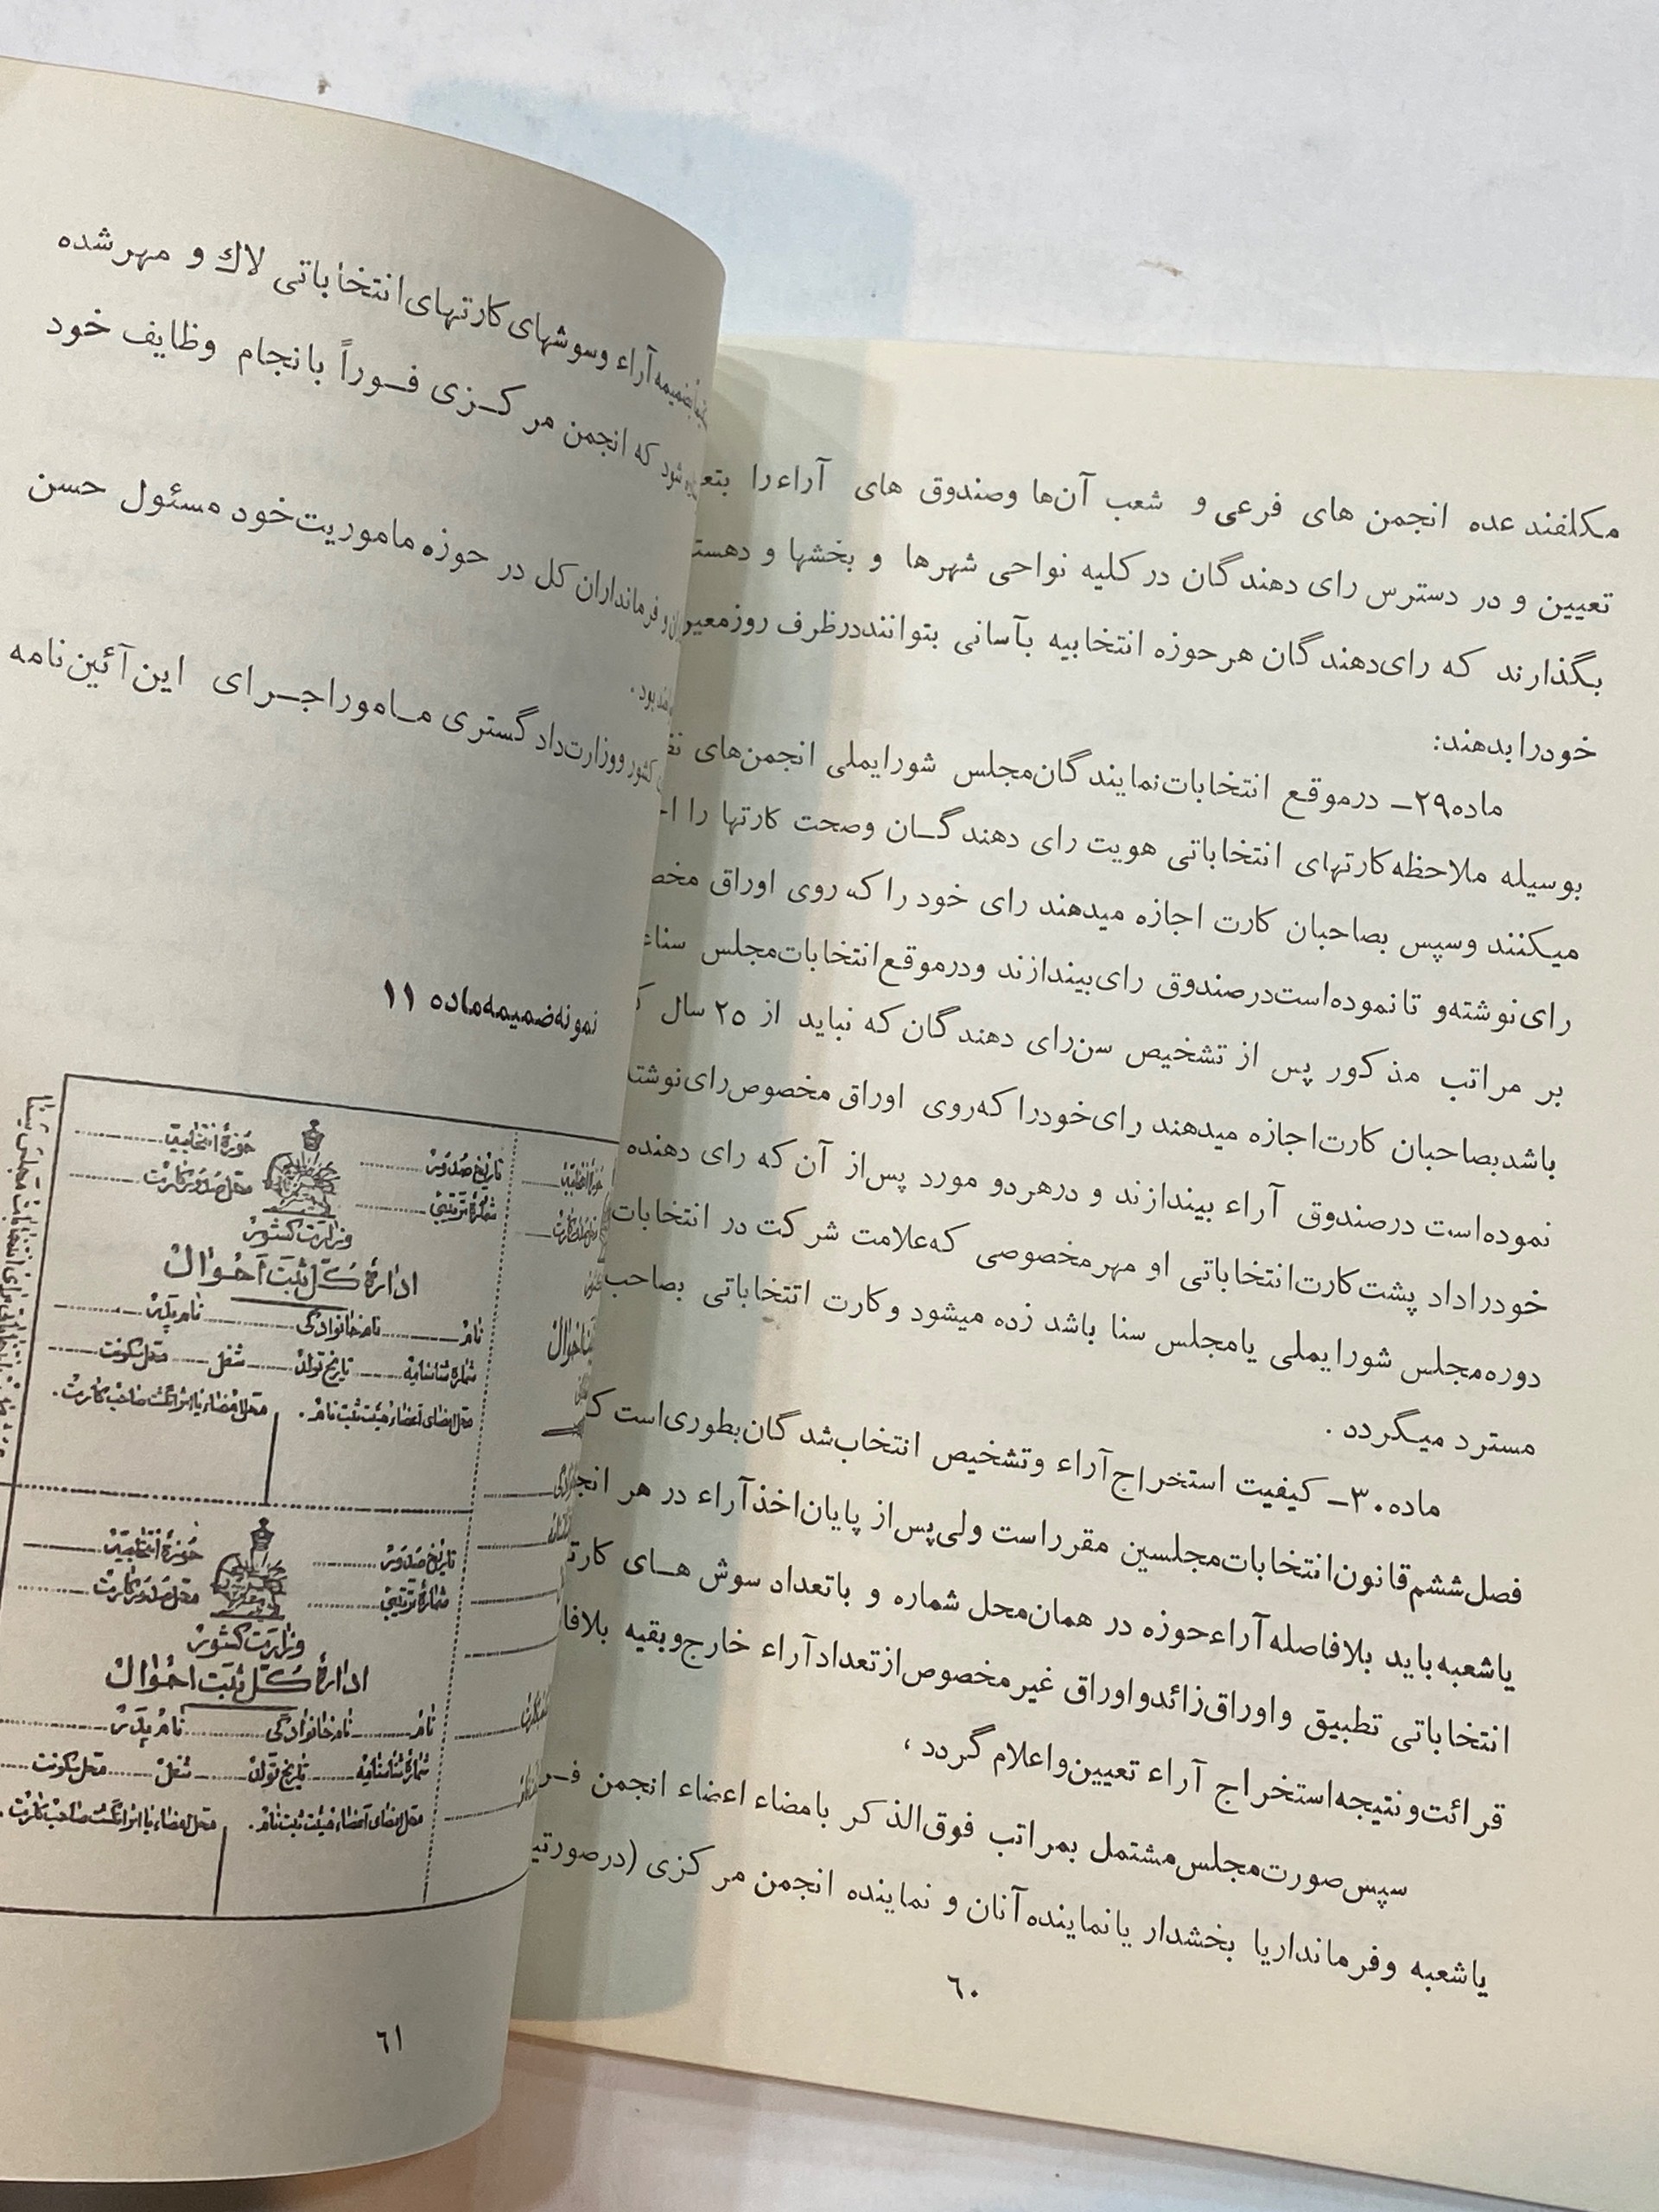 مکلفند عده انجمن های فرعی و شعب آن‌ها وصندوق های آراءرا
تعیین و در دسترس رای دهندگان در کلیه نواحی شهرها و بخشها و
بگذارند که رای‌دهندگان هرحوزه انتخابیه بآسانی بتوانند درظرف روز
خودرا بدهند:
ماده۲۹ـ درموقع انتخابات نمایندگان مجلس شورایملی انجمن‌های
بوسیله ملاحظه کارتهای انتخاباتی هویت رای دهندگـان وصحت کارتها را
میکنند وسپس بصاحبان کارت اجازه میدهند رای خود را که روی اوراق
رای نوشته‌و تا نموده‌است درصندوق رای بیندازند ودرموقع انتخابات مجلس
بر مراتب مذکور پس از تشخیص سن رای دهندگان که نباید از ۲۵ سال
باشد بصاحبان کارت اجازه میدهند رای خودرا که‌روی اوراق مخصوص رای
نموده‌است درصندوق آراء بیندازند و درهردو مورد پس‌از آن که رای دهنده
خودراداد پشت کارت انتخاباتی او مهر مخصوصی که علامت شرکت در انتخابات
دوره مجلس شورایملی یا مجلس سنا باشد زده میشود وکارت اتتخاباتی بصاحب
مسترد میـگردد .
ماده۳۰ـ کیفیت استخراج آراء وتشخیص انتخاب شدگان بطوری‌است
فصل ششم قانون انتخابات مجلسین مقرراست ولی پس‌از پایان اخذ آراء در هر
یا شعبه باید بلافاصله آراء حوزه در همان محل شماره و باتعداد سوش هـای
انتخاباتی تطبیق و اوراق زائدو اوراق غیر مخصوص از تعداد آراء خارج وبقیه
قرائت و نتیجه استخراج آراء تعیین و اعلام گردد ،
سپس صورت مجلس مشتمل بمراتب فوق‌الذکر بامضاء اعضاء انجمن
یا شعبه وفرماندار یا بخشدار یا نماینده آنان و نماینده انجمن مرکزی
٦٠
آراء وسوشهای کارتهای انتخاباتی لاك و مهر شده
شود که انجمن مرکـزی فـوراً بانجام وظایف خود
و فرمانداران کل در حوزه ماموریت خود مسئول حسن
بود .
کشور ووزارت دادگستری مـامور اجـرای این آئین نامه
نمونه ضمیمه ماده ۱۱
تاریخ صدور
حوزهٔ انتخابیه
شمارهٔ ترتیبی
محل صدور کارت
وزارت کشور
ادارهٔ کل ثبت احوال
نام نام خانوادگی نام پدر
شماره شناسنامه تاریخ تولد شغل محل سکونت
محل امضای اعضاء هیئت ثبت نام . محل امضاء یا اثر انگشت صاحب کارت .
تاریخ صدور
حوزهٔ انتخابیه
شمارهٔ ترتیبی
محل صدور کارت
وزارت کشور
ادارهٔ کل ثبت احوال
نام نام خانوادگی نام پدر
شماره شناسنامه تاریخ تولد شغل محل سکونت
محل امضای اعضاء هیئت ثبت نام . محل امضاء یا اثر انگشت صاحب کارت .
٦١